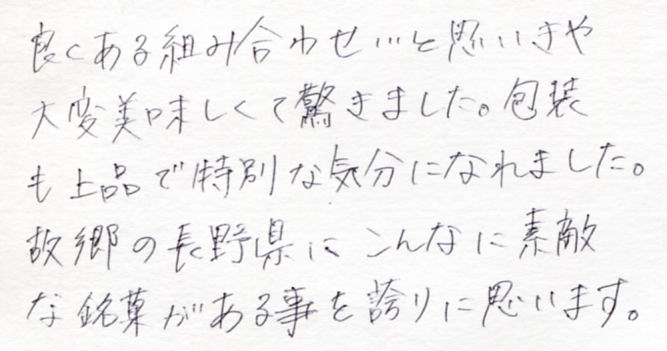 良くある組み合わせ…と思いきや
大変美味しくて驚きました。包装
も上品で特別な気分になれました。
故郷の長野県にこんなに素敵
な銘菓がある事を誇りに思います。